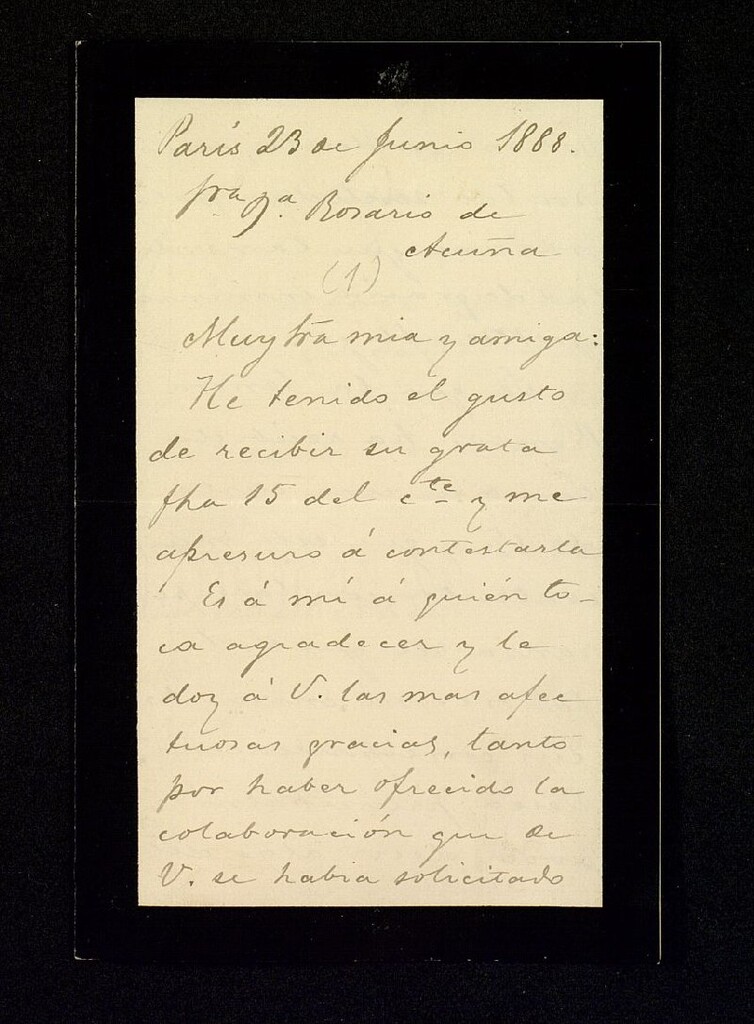 París 23 de Junio 1888.
Sra Da. Rosario de
Acuña
(1)
Muy Sra mia y amiga:
He tenido el gusto
de recibir su grata
fha 15 del cte y me
apresuro á contestarla
Es á mí á quién to-
ca agradecer y le
doy á V. las mas afec
tuosas gracias, tanto
por haber ofrecido la
colaboración que de
V. se habia solicitado